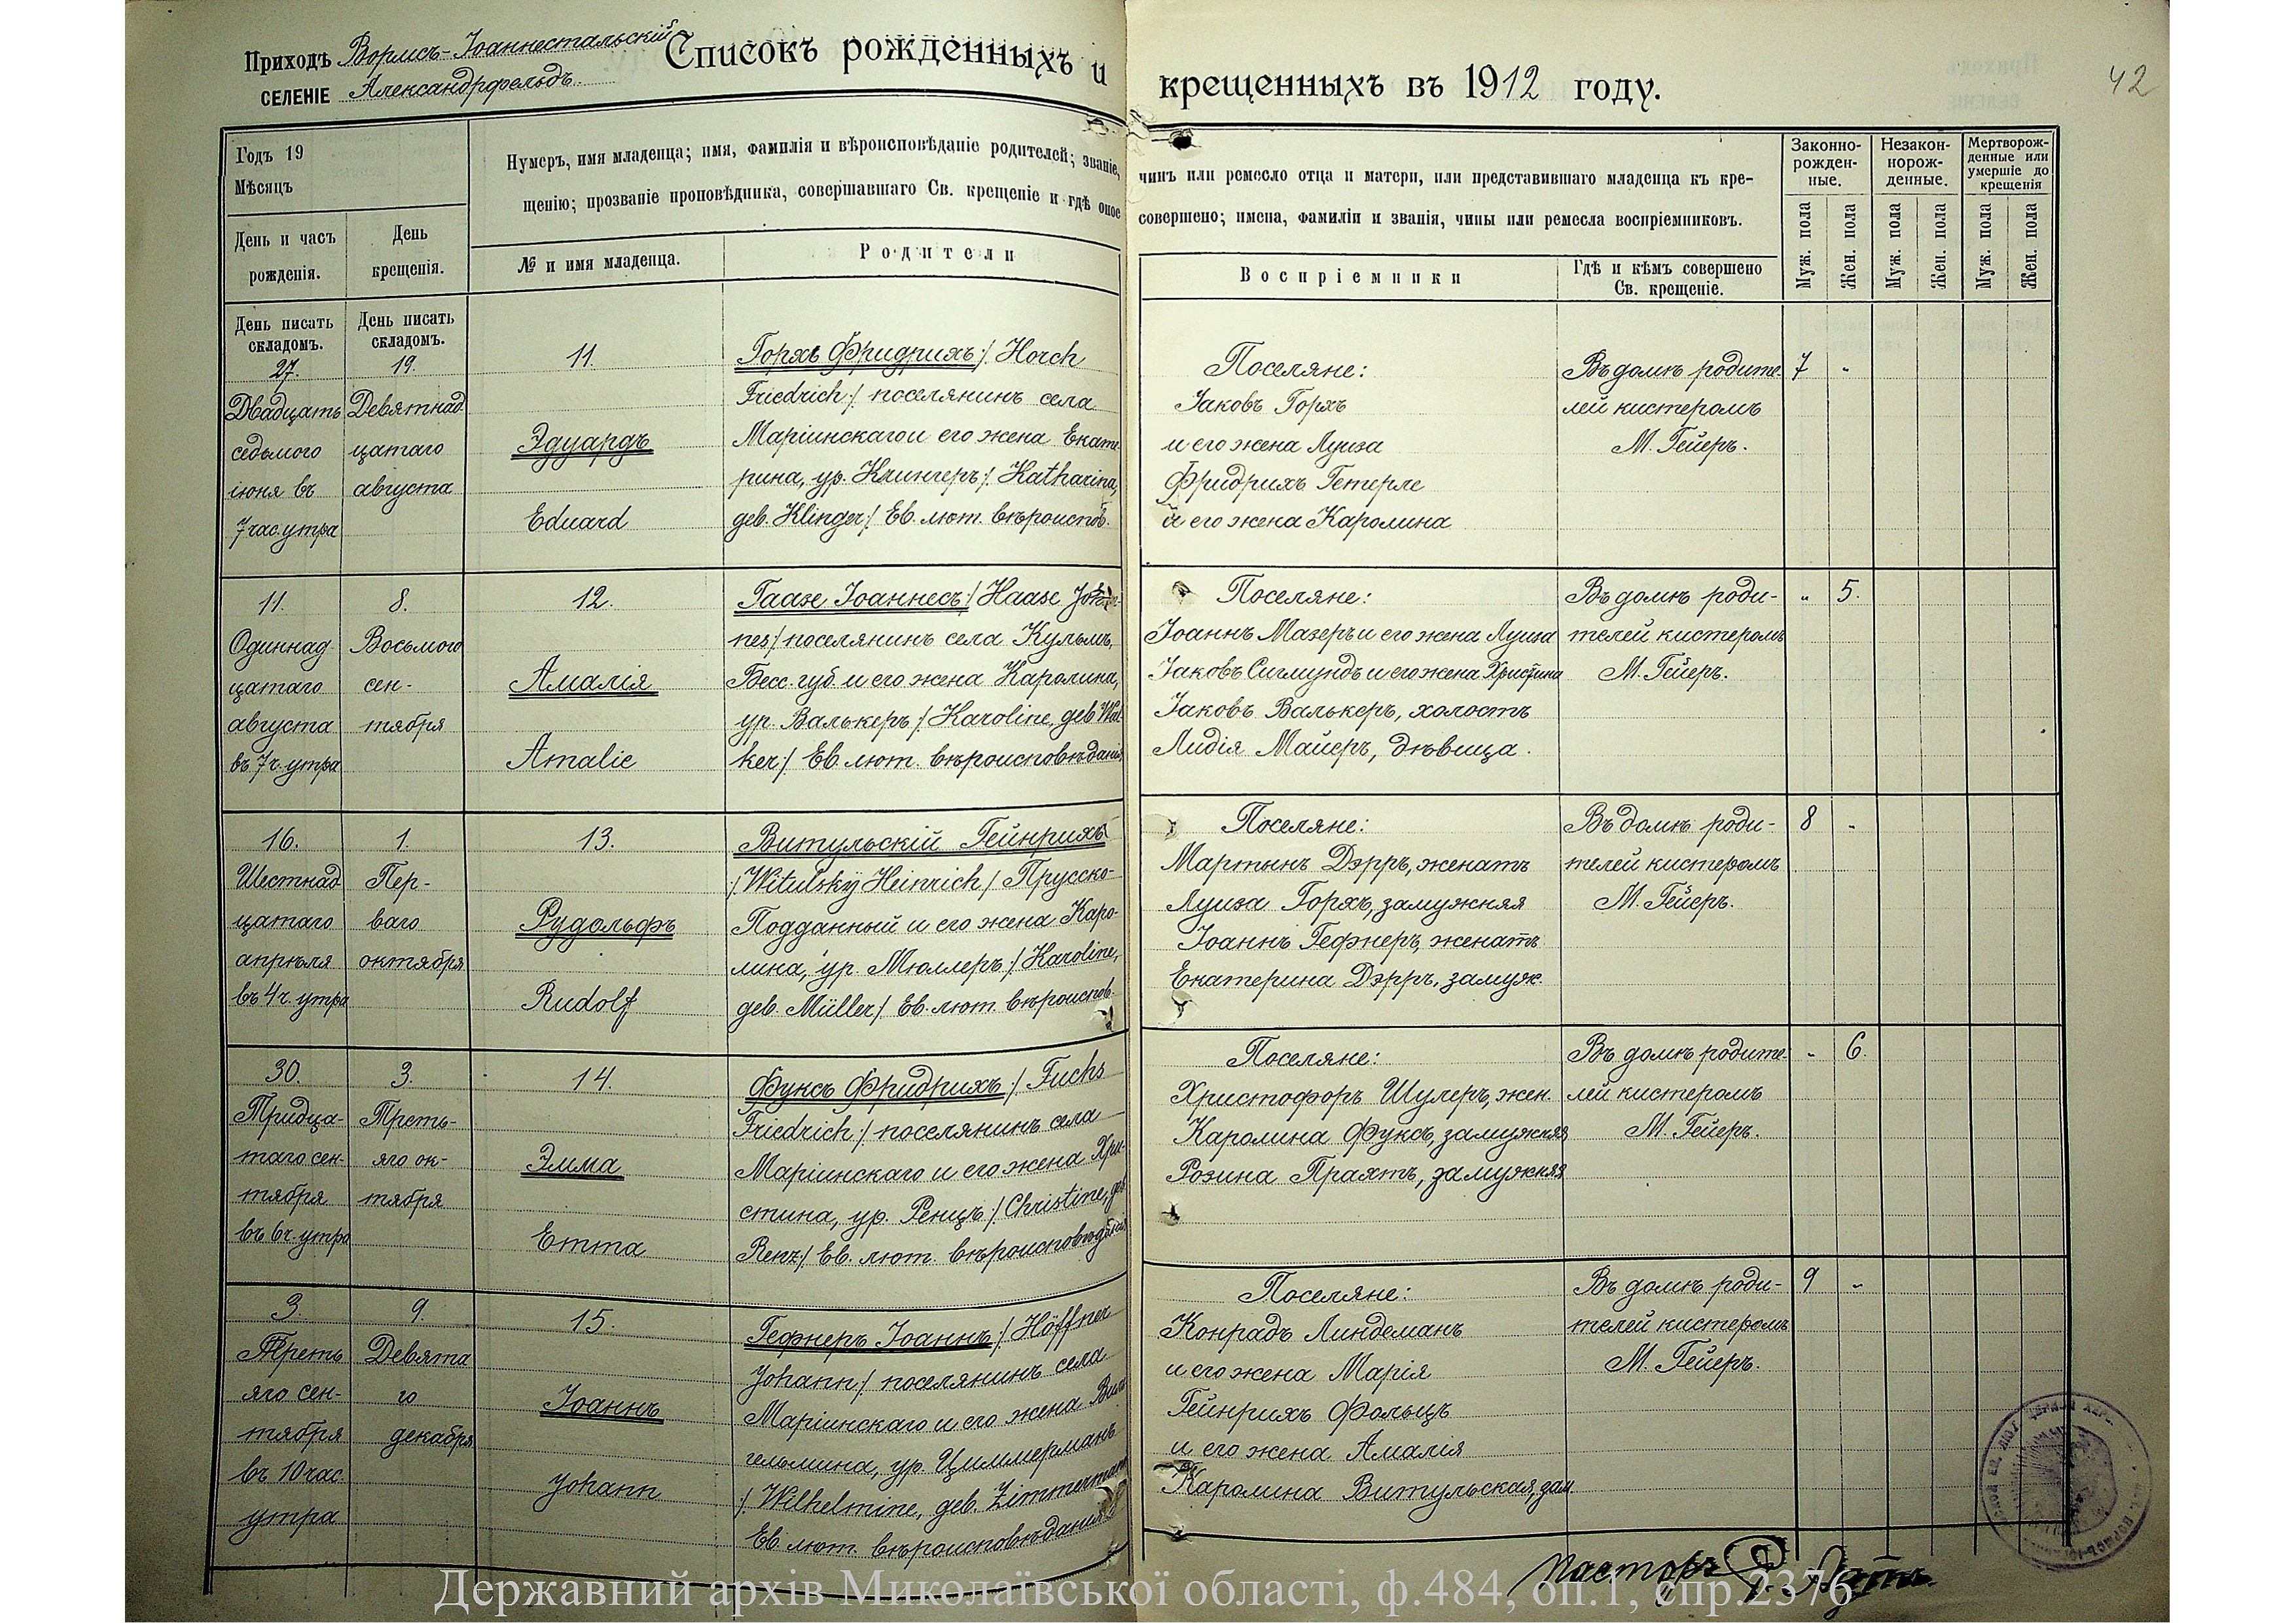 Приходъ Вормсъ-Іоаннестальскій
СЕЛЕНІЕ Александрфельдъ.
Списокъ рожденныхъ и крещенныхъ въ 1912 году.
42
Годъ 19
Мѣсяцъ
День и часъ рожденія.
День крещенія.
Нумеръ, имя младенца; имя, фамилія и вѣроисповѣданіе родителей; званіе, чинъ или ремесло отца и матери, или представившаго младенца къ кре-
щенію; прозваніе проповѣдника, совершавшаго Св. крещеніе и гдѣ оное совершено; имена, фамиліи и званія, чины или ремесла воспріемниковъ.
№ и имя младенца.
Родители
Воспріемники
Гдѣ и кѣмъ совершено
Св. крещеніе.
Законно-
рожден-
ные.
Незакон-
норож-
денные.
Мертворож-
денные или
умершіе до
крещенія
Муж. пола
Жен. пола
Муж. пола
Жен. пола
Муж. пола
Жен. пола
День писать
складомъ.
День писать
складомъ.
27.
Двадцать
седьмого
іюня въ
7 час. утра
19.
Девятнад
цатаго
августа
11.
Эдуардъ
Eduard
Горхъ Фридрихъ /: Horch
Friedrich :/ поселянинъ села
Маріинскаго и его жена Екате
рина, ур. Клингеръ /: Katharina,
geb. Klinger :/ Ев. лют. вѣроиспов.
Поселяне:
Іаковъ Горхъ
и его жена Луиза
Фридрихъ Гетерле
и его жена Каролина
Въ домѣ родите-
лей кистеромъ
М. Гейеръ.
7 "
11.
Одиннад
цатаго
августа
въ 7 ч. утра
8.
Восьмого
сен-
тября
12.
Амалія
Amalie
Гаазе Іоаннесъ /: Haase Johan-
nes :/ поселянинъ села Кульмъ,
Бесс. губ. и его жена Каролина,
ур. Валькеръ /: Karoline, geb. Wal-
ker :/ Ев. лют. вѣроисповѣданія
Поселяне:
Іоаннъ Мазеръ и его жена Луиза
Іаковъ Сигмундъ и его жена Христина
Іаковъ Валькеръ, холостъ
Лидія Майеръ, дѣвица.
Въ домѣ роди-
телей кистеромъ
М. Гейеръ.
" 5.
16.
Шестнад
цатаго
апрѣля
въ 4 ч. утра
1.
Пер-
ваго
октября
13.
Рудольфъ
Rudolf
Витульскій Гейнрихъ
/: Witulsky Heinrich :/ Прусско-
Подданный и его жена Каро-
лина, ур. Мюллеръ /: Karoline,
geb. Müller :/ Ев. лют. вѣроиспов.
Поселяне:
Мартынъ Дэрръ, женатъ
Луиза Горхъ, замужняя
Іоаннъ Гефнеръ, женатъ
Екатерина Дэрръ, замуж.
Въ домѣ роди-
телей кистеромъ
М. Гейеръ.
8 "
30.
Тридца-
таго сен-
тября
въ 6 ч. утра
3.
Треть-
яго ок-
тября
14.
Эмма
Emma
Фуксъ Фридрихъ /: Fuchs
Friedrich :/ поселянинъ села
Маріинскаго и его жена Хри-
стина, ур. Ренцъ /: Christine, geb.
Renz :/ Ев. лют. вѣроисповѣданія
Поселяне:
Христофоръ Шулеръ, жен.
Каролина Фуксъ, замужняя
Розина Праятъ, замужняя
Въ домѣ родите-
лей кистеромъ
М. Гейеръ.
" 6.
3.
Треть
яго сен-
тября
въ 10 час.
утра
9.
Девята
го
декабря
15.
Іоаннъ
Johann
Гефнеръ Іоаннъ /: Höffner
Johann :/ поселянинъ села
Маріинскаго и его жена Виль
гельмина, ур. Циммерманъ
/: Wilhelmine, geb. Zimmermann
Ев. лют. вѣроисповѣданія
Поселяне:
Конрадъ Линдеманъ
и его жена Марія
Гейнрихъ Фольцъ
и его жена Амалія
Каролина Витульская, дѣв.
Въ домѣ роди-
телей кистеромъ
М. Гейеръ.
9 "
Пасторъ
Державний архів Миколаївської області, ф.484, оп.1, спр.2376